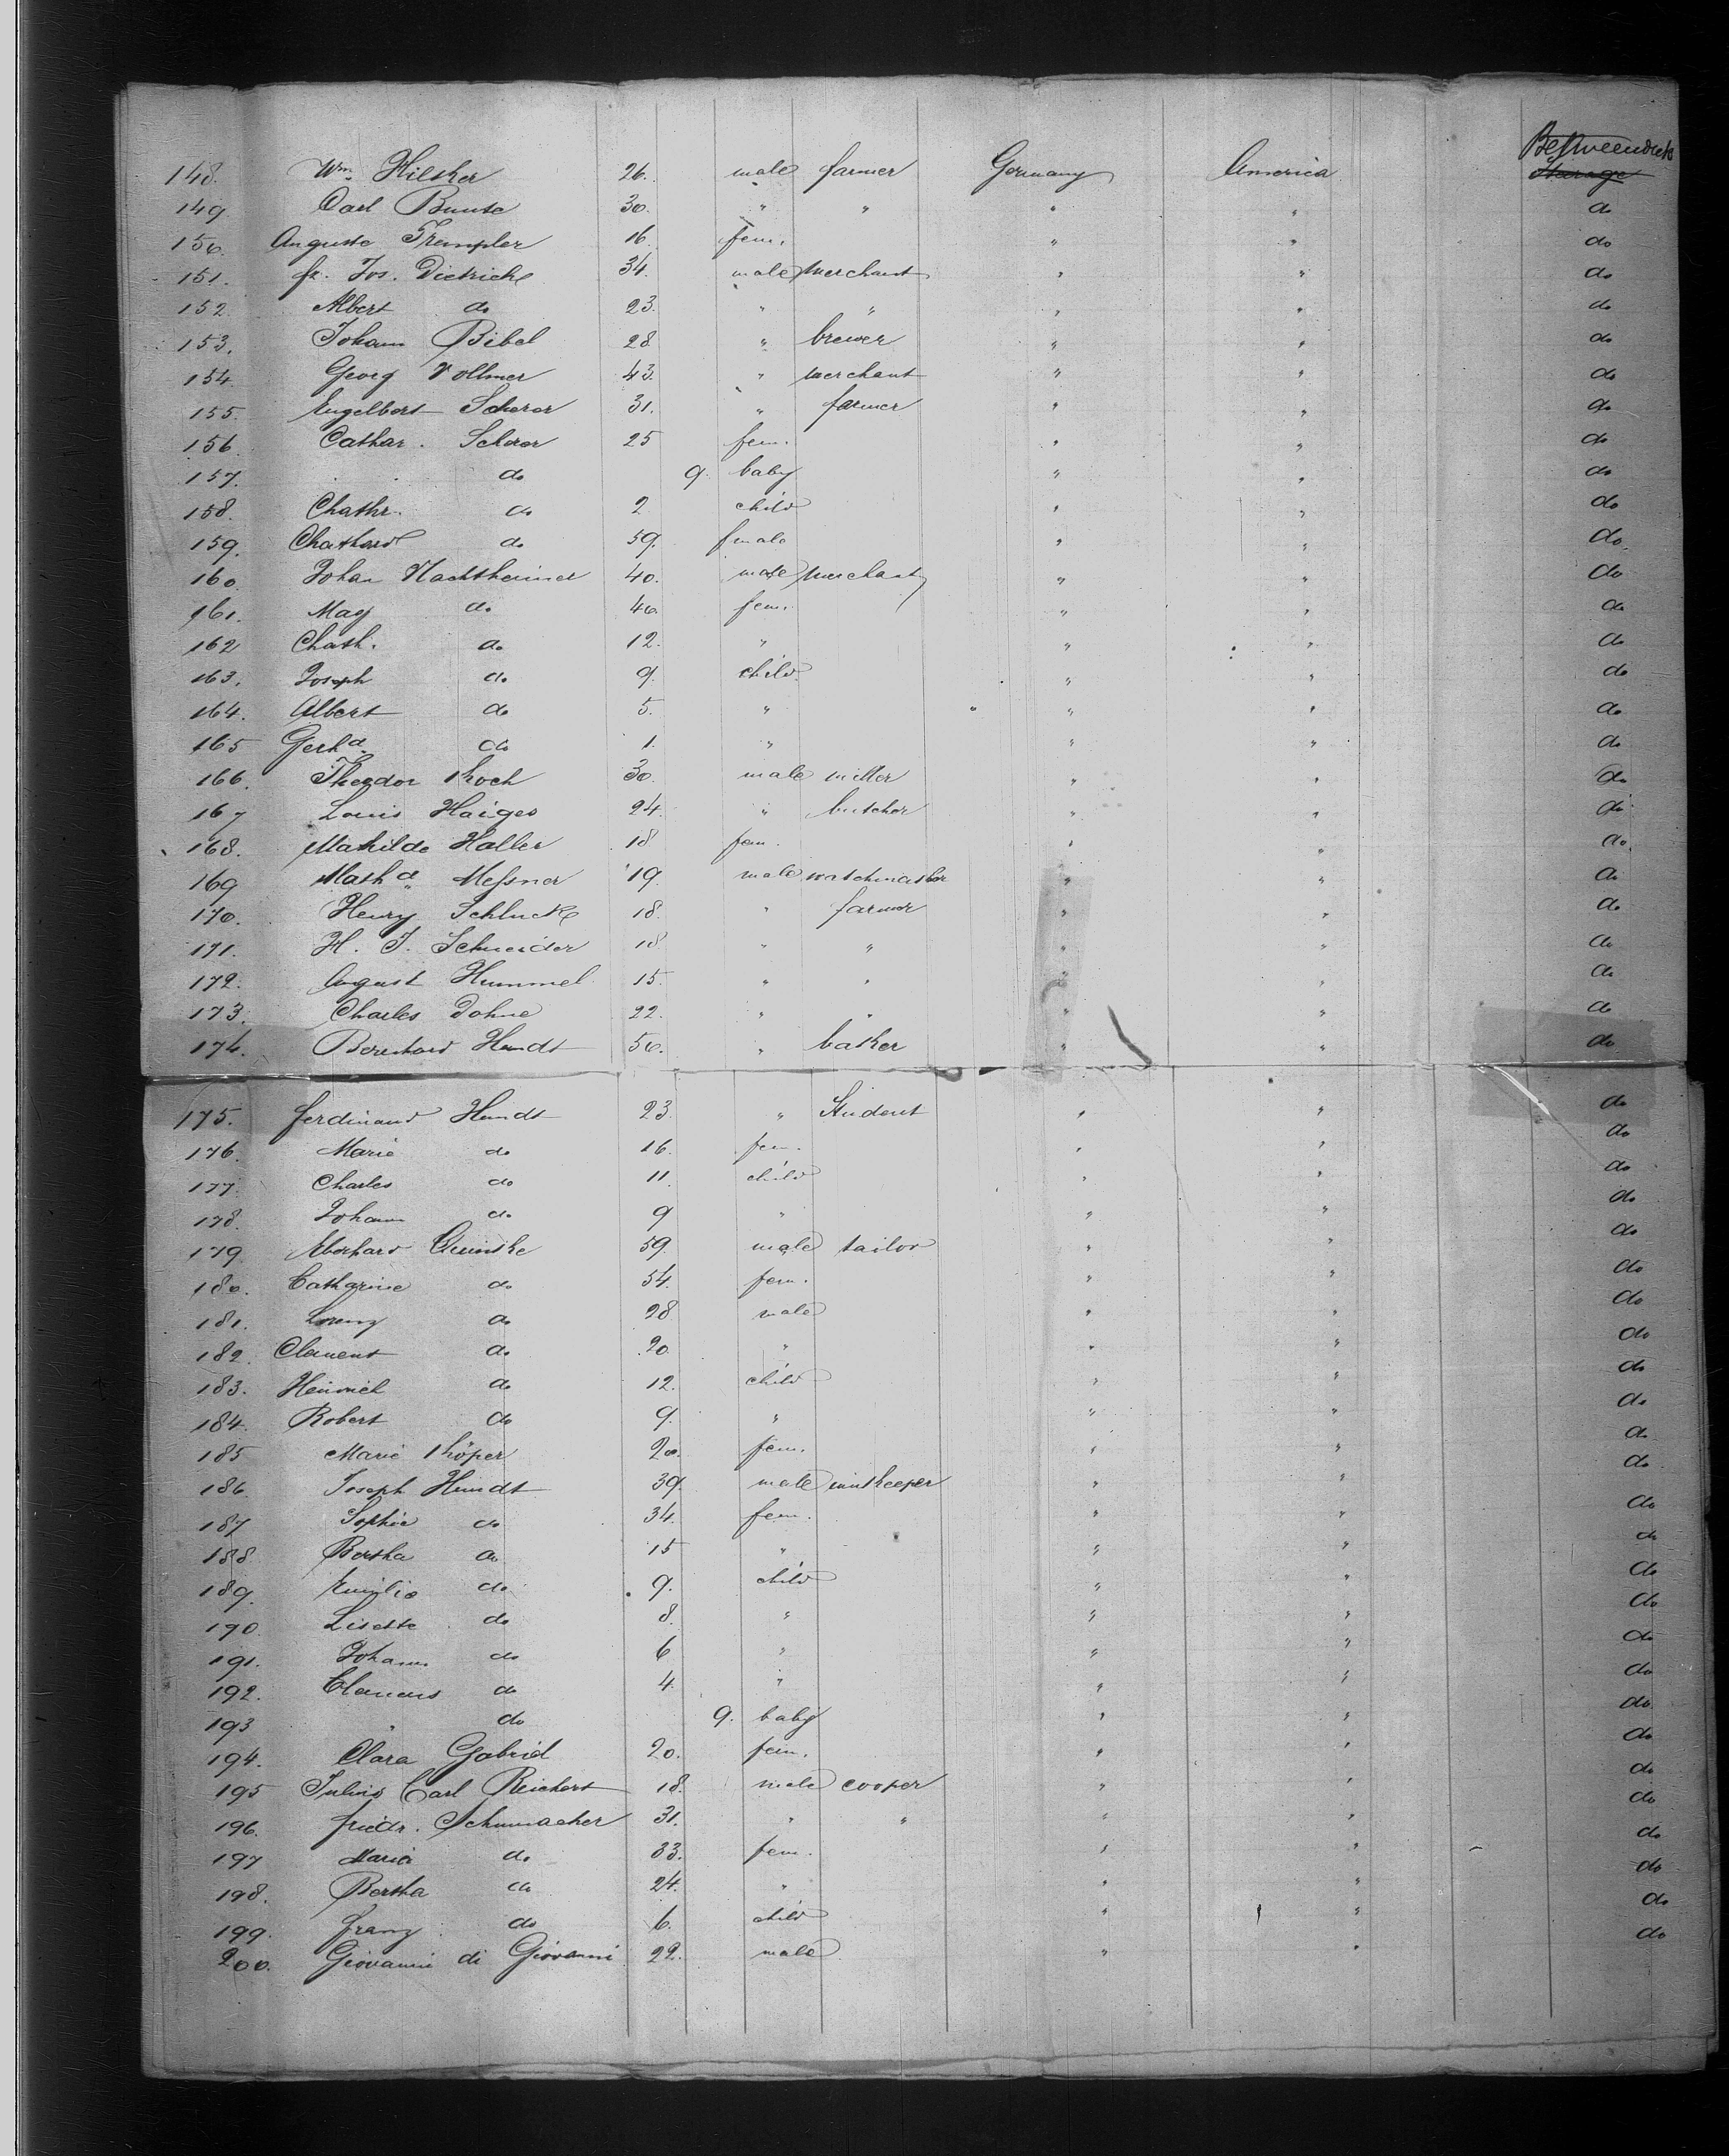 Betweendeck
148. Wm. Hilsker 26. male farmer Germany America Steerage
149 Carl Bunte 30. " " " " do
150. Auguste Trempler 16. fem. " " do
151. fr. Jos. Dietrich 34. male merchant " " do
152 Albert do 23. " " " " do
153. Johann Bibel 28 " brewer " " do
154. Georg Vollmer 43. " merchant " " do
155. Engelbert Scherer 31. " farmer " " do
156. Cathar. Scherer 25 fem. " " do
157. do 9. baby " " do
158. Chathr. do 2 child " " do
159. do 59. fmale " " do.
160. Johan 40. male merchant " " do
161. Mag do 40. fem. " " do
162 Chath. do 12. " " " do
163. Joseph do 9. child " " do
164. Albert do 5. " " " do
165 Gerhd. do 1. " " " do
166. Theodor Koch 30. male miller " " do
167 Louis Haiges 24. " butcher " " do
168. Mathilde Haller 18 fem. " " do.
169 Mathd. Messner 19. male " " do
170. Henry Schlucke 18. " farmer " " do
171. H. J. Schneider 18 " " " " do
172. August Hummel 15. " " " " do
173. Charles Dohne 22. " " " " do
174. Bernhard Hundt 50. " basker " " do
175. ferdinand Hundt 23. " Student " " do
176. Marie do 16. fem. " " do
177 Charles do 11. child " " do
178. Johann do 9 " " " do
179. Eberhard 59. male tailor " " do
180. Catharine do 54. fem. " " do
181. Lorenz do 28 male " " do
182. Clement do 20. " " " do
183. Heinrich do 12. child " " do
184. Robert do 9. " " " do
185 Marie Köper 20. fem. " " do
186. Joseph Hundt 39. male innkeeper " " do
187 Sophie do 34. fem. " " do
188 Bertha do 15 " " " do
189. Emilie do 9. child " " do
190. Lisette do 8. " " " do
191. Johann do 6 " " " do
192. Clemens do 4. " " " do
193 " do 9. baby " " do
194. Clara Gabriel 20. fem. " " do
195 Julius Carl Reichert 18. male cooper " " do
196. friedr. Schumacher 31. " " " " do
197 Maria do 33. fem. " " do
198. Bertha do 24. " " " do
199. franz do 6. child " " do
200. Giovanni di Giovanni 22. male " " do